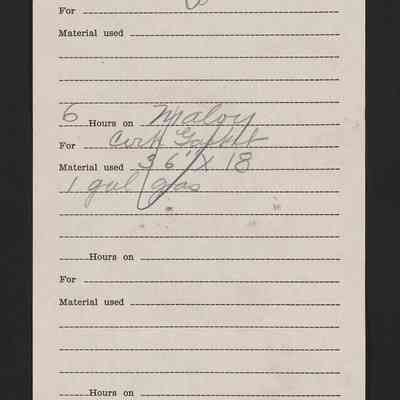 For
Material used
6 Hours on Maloy
For Cork Gasket
Material used 36" X 18
1 gal gas
Hours on
For
Material used
Hours on